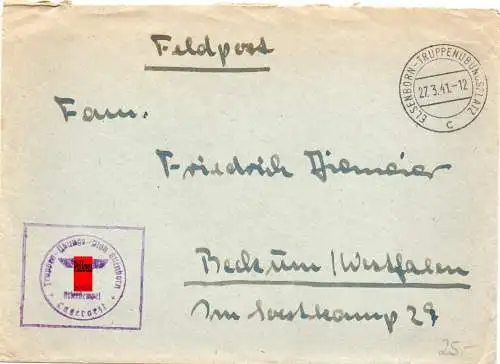 Feldpost
ELSENBORN-TRUPPENÜBUNGSPLATZ
27.3.41.-12
c
Fam.
Friedrich
Beckum/Westfalen
Im Soestkamp 29
Truppen-Übungs-Platz Elsenborn
Briefstempel
Lagerarzt
25.-